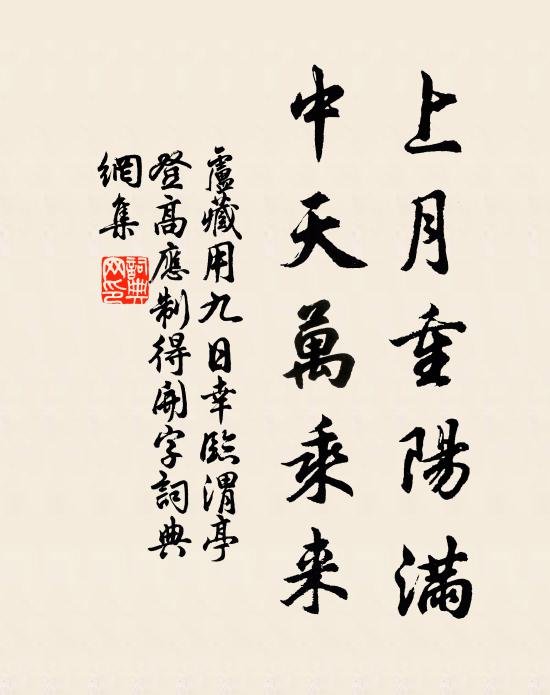 上月重陽滿
中天萬乘来
盧藏用九日幸臨渭亭
登高應制得開字詞典
網集
詞典網印